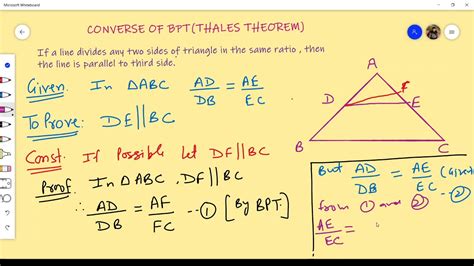 Microsoft Whiteboard
CONVERSE OF BPT(THALES THEOREM)
If a line divides any two sides of triangle in the same ratio , then
the line is parallel to third side.
Given: In ΔABC AD/DB = AE/EC
To Prove: DE||BC
Const: If Possible let DF||BC
Proof: In ΔABC, DF||BC
∴ AD/DB = AF/FC --① [By BPT]
A
F
D
E
B
C
But AD/DB = AE/EC (Given) --②
from ① and ②
AE/EC =